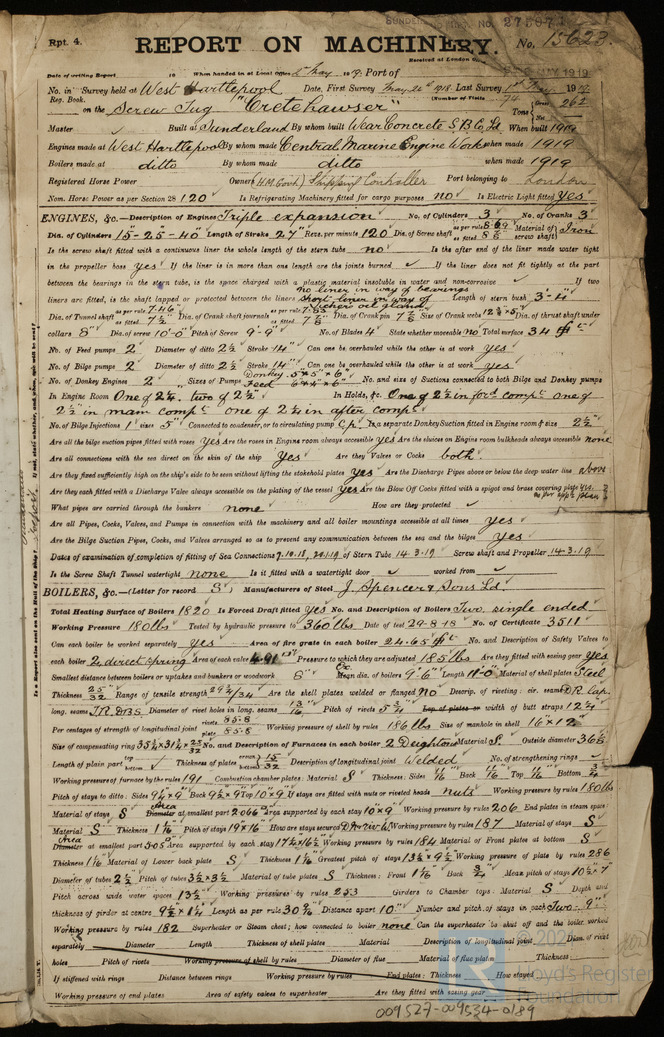 SUNDERLAND No. 27
Rpt. 4.
REPORT ON MACHINERY. No. 15623
Received at London Office MAY 1919
Date of writing Report 19 When handed in at Local Office 2 May 19 19 Port of
No. in Survey held at West Hartlepool Date, First Survey May 22nd 1918 Last Survey 1st May 1919
Reg. Book. (Number of Visits 74)
on the Screw Tug "Cretehawser" Tons Gross 262 Net
Master Built at Sunderland By whom built Wear Concrete S.B. Co Ld When built 1919
Engines made at West Hartlepool By whom made Central Marine Engine Works when made 1919
Boilers made at ditto By whom made ditto when made 1919
Registered Horse Power Owners (H.M. Govt) Shipping Controller Port belonging to London
Nom. Horse Power as per Section 28 120 Is Refrigerating Machinery fitted for cargo purposes no Is Electric Light fitted yes
ENGINES, &c.—Description of Engines Triple expansion No. of Cylinders 3 No. of Cranks 3
Dia. of Cylinders 15-25-40 Length of Stroke 27" Revs. per minute 120 Dia. of Screw shaft as per rule 8.69 as fitted 8 7/8 Material of screw shaft Iron
Is the screw shaft fitted with a continuous liner the whole length of the stern tube no Is the after end of the liner made water tight
in the propeller boss yes If the liner is in more than one length are the joints burned If the liner does not fit tightly at the part
between the bearings in the stern tube, is the space charged with a plastic material insoluble in water and non-corrosive If two
no liner in way of bearings
liners are fitted, is the shaft lapped or protected between the liners short liner in way of Length of stern bush 3'-4"
oil gland
Dia. of Tunnel shaft as per rule 7.46 as fitted 7 1/2 Dia. of Crank shaft journals as per rule 7.83 as fitted 7 7/8 Dia. of Crank pin 7 7/8 Size of Crank webs Dia. of thrust shaft under
collars 8" Dia. of screw 10'-0" Pitch of Screw 9'-9" No. of Blades 4 State whether moveable no Total surface 34
No. of Feed pumps 2 Diameter of ditto 2 1/2 Stroke 14" Can one be overhauled while the other is at work yes
No. of Bilge pumps 2 Diameter of ditto 2 1/2 Stroke 14" Can one be overhauled while the other is at work yes
No. of Donkey Engines 2 Sizes of Pumps Donkey 5"x5"x6" Feed 6"x4"x6" No. and size of Suctions connected to both Bilge and Donkey pumps
In Engine Room One of 2 1/4, two of 2 1/2" In Holds, &c. One of 2 1/2 in ford compt one of
2 1/2 in main compt one of 2 1/2 in after compt
No. of Bilge Injections 1 sizes 5" Connected to condenser, or to circulating pump C.p. Is a separate Donkey Suction fitted in Engine room & size 2 1/2
Are all the bilge suction pipes fitted with roses yes Are the roses in Engine room always accessible yes Are the sluices on Engine room bulkheads always accessible none
Are all connections with the sea direct on the skin of the ship Yes Are they Valves or Cocks both
Are they fixed sufficiently high on the ship's side to be seen without lifting the stokehold plates yes Are the Discharge Pipes above or below the deep water line above
Are they each fitted with a Discharge Valve always accessible on the plating of the vessel yes Are the Blow Off Cocks fitted with a spigot and brass covering plate yes
What pipes are carried through the bunkers none How are they protected
Are all Pipes, Cocks, Valves, and Pumps in connection with the machinery and all boiler mountings accessible at all times yes
Are the Bilge Suction Pipes, Cocks, and Valves arranged so as to prevent any communication between the sea and the bilges yes
Dates of examination of completion of fitting of Sea Connections 7.10.18, 20.1.19 of Stern Tube 14-3-19 Screw shaft and Propeller 14-3-19
Is the Screw Shaft Tunnel watertight none Is it fitted with a watertight door worked from
BOILERS, &c.—(Letter for record S) Manufacturers of Steel J. Spencer & Sons Ld.
Total Heating Surface of Boilers 1820 Is Forced Draft fitted yes No. and Description of Boilers Two single ended
Working Pressure 180 lbs Tested by hydraulic pressure to 360 lbs Date of test 29-8-18 No. of Certificate 3511
Can each boiler be worked separately yes Area of fire grate in each boiler 24.65 No. and Description of Safety Valves to
each boiler 2, direct spring Area of each valve Pressure to which they are adjusted 185 lbs Are they fitted with easing gear yes
Smallest distance between boilers or uptakes and bunkers or woodwork 6" Mean dia. of boilers 9'-6" Length 11'-0" Material of shell plates Steel
Thickness 25/32 Range of tensile strength 29 1/2/34 Are the shell plates welded or flanged no Descrip. of riveting: cir. seams D.R. Lap.
long. seams T.R.D.B.S. Diameter of rivet holes in long. seams 13/16 Pitch of rivets 5 3/4 Lap of plates or width of butt straps 12 1/4
Per centages of strength of longitudinal joint rivets 85.8 plate 85.8 Working pressure of shell by rules 186 lbs Size of manhole in shell 16"x12"
Size of compensating ring No. and Description of Furnaces in each boiler 2 Deightons Material S. Outside diameter 36 5/8
Length of plain part top bottom Thickness of plates crown bottom 15/32 Description of longitudinal joint Welded No. of strengthening rings
Working pressure of furnace by the rules 191 Combustion chamber plates: Material S Thickness: Sides 11/16 Back 11/16 Top 11/16 Bottom 3/4
Pitch of stays to ditto: Sides 9 1/4 x 9" Back 9 1/2 x 9" Top 10"x9" If stays are fitted with nuts or riveted heads nuts Working pressure by rules 180 lbs
Material of stays S Area Diameter at smallest part 2.066 Area supported by each stay 10"x9 Working pressure by rules 206 End plates in steam space:
Material S Thickness 1 1/16 Pitch of stays 19"x16" How are stays secured Working pressure by rules 187 Material of stays S
Area Diameter at smallest part 5.05 Area supported by each stay 17 3/4 x 16 1/2 Working pressure by rules 184 Material of Front plates at bottom S
Thickness 1 1/16 Material of Lower back plate S Thickness 1 1/16 Greatest pitch of stays 13 1/2 x 9 1/2 Working pressure of plate by rules 286
Diameter of tubes 2 1/2 Pitch of tubes 3 3/4 x 3 1/2 Material of tube plates S Thickness: Front 1 1/16 Back 3/4 Mean pitch of stays 10 1/2 x 7
Pitch across wide water spaces 13 1/2 Working pressures by rules 253 Girders to Chamber tops: Material S Depth and
thickness of girder at centre 9 1/2 x 1 1/4 Length as per rule 30 5/16 Distance apart 10" Number and pitch of stays in each Two 9"
Working pressure by rules 182 Superheater or Steam chest; how connected to boiler none Can the superheater be shut off and the boiler worked
separately Diameter Length Thickness of shell plates Material Description of longitudinal joint Diam. of rivet
holes Pitch of rivets Working pressure of shell by rules Diameter of flue Material of flue plates Thickness
If stiffened with rings Distance between rings Working pressure by rules End plates: Thickness How stayed
Working pressure of end plates Area of safety valves to superheater Are they fitted with easing gear
009527-009534-0189
Lloyd's Register
Foundation